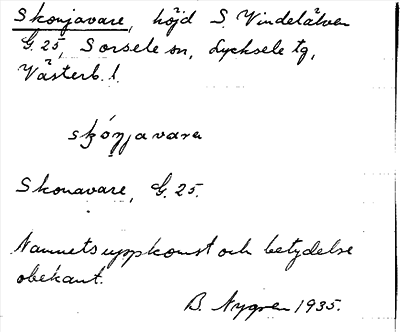 Skonjavare, höjd S. Vindelälven
G. 25, Sorsele sn, Lycksele tg,
Västerb. l.
skóṇjavarɛ
Skonavare, G. 25.
Namnets uppkomst och betydelse
obekant.
B. Nygren 1935.